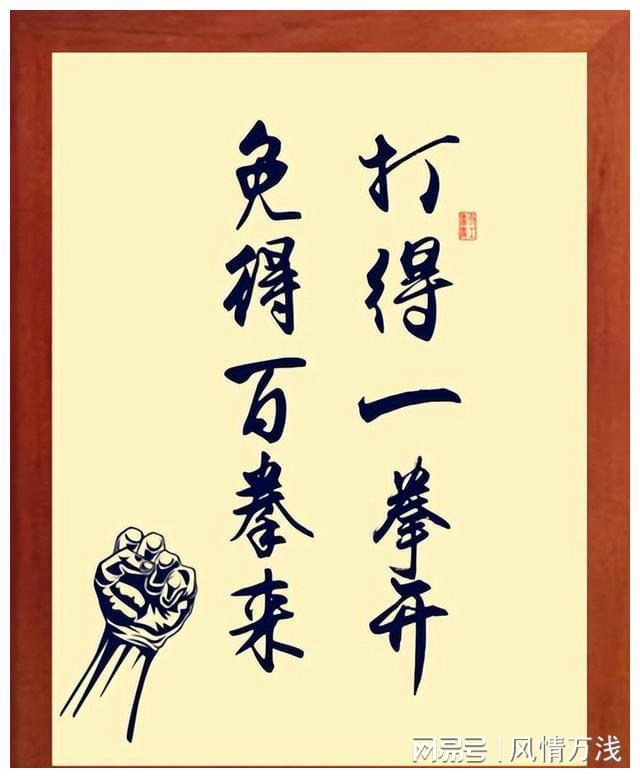 打得一拳开
免得百拳来
网易号 | 风情万浅